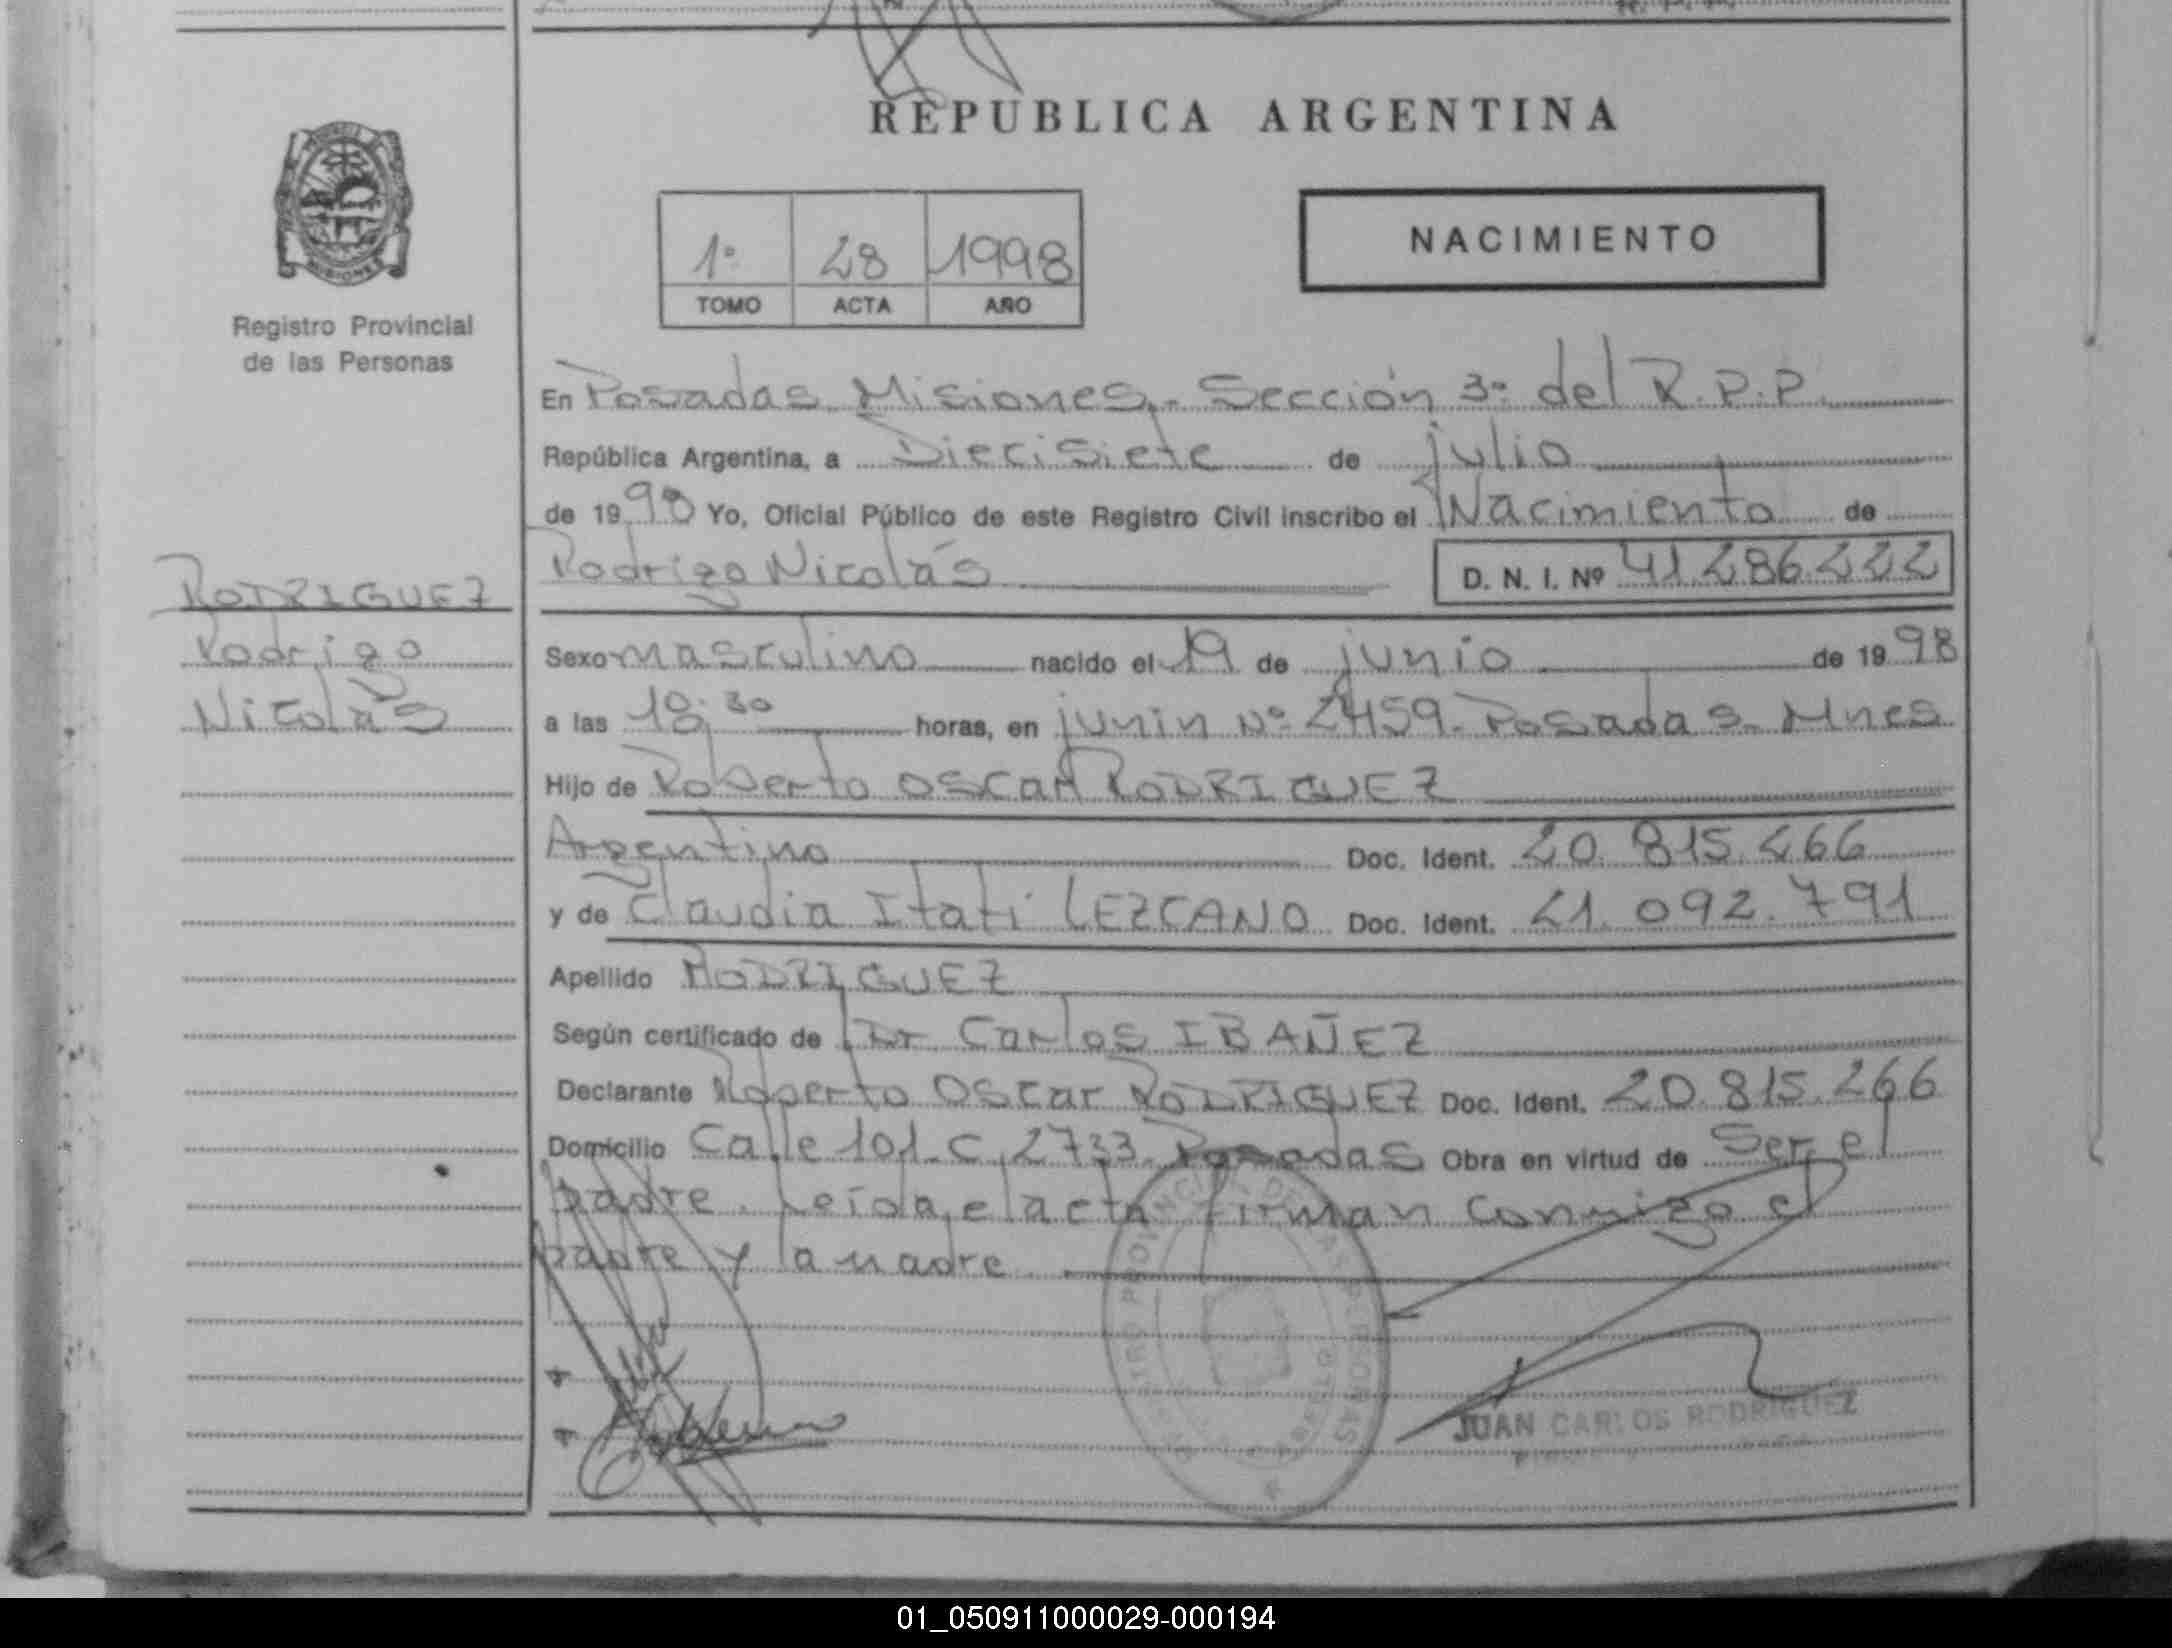 REPUBLICA ARGENTINA
1º 28 1998
TOMO ACTA AÑO
NACIMIENTO
Registro Provincial
de las Personas
En Posadas Misiones.- Sección 3º del R.P.P.
República Argentina, a Diecisiete de julio
de 1998 Yo, Oficial Público de este Registro Civil inscribo el Nacimiento de
Rodrigo Nicolás D. N. I. Nº 41.286.222
RODRIGUEZ
Rodrigo
Nicolás
Sexo masculino nacido el 19 de junio de 1998
a las 18:30 horas, en junin Nº 2459. Posadas. Mnes
Hijo de Roberto OSCAR RODRIGUEZ
Argentino Doc. Ident. 20.815.266
y de Claudia Itatí LEZCANO Doc. Ident. 21.092.791
Apellido RODRIGUEZ
Según certificado de Dr Carlos IBAÑEZ
Declarante Roberto OSCar RODRIGUEZ Doc. Ident. 20.815.266
Domicilio Calle 101. C. 2733. Posadas Obra en virtud de Ser el
padre. Leída el acta firman conmigo el
padre y la madre
JUAN CARLOS RODRIGUEZ
01_050911000029-000194